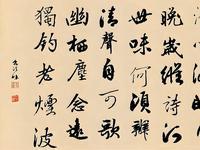 晚歲維詩
世味何須辨
清聲自可歌
幽栖塵念遠
獨釣老煙波